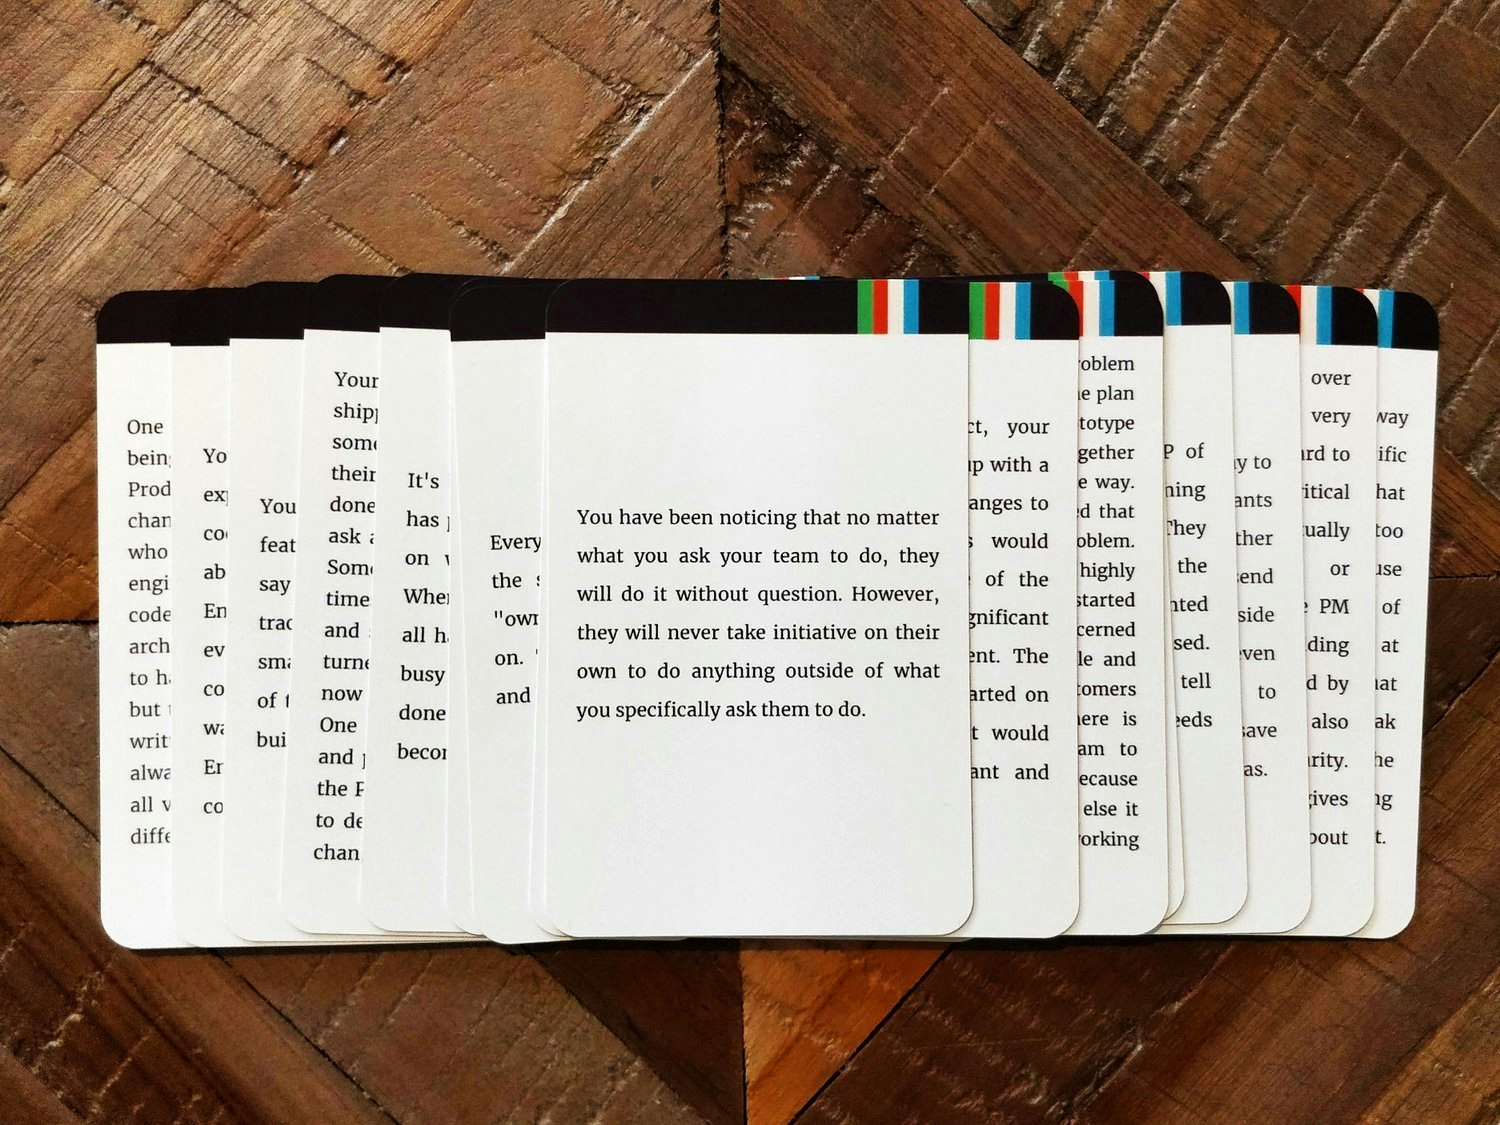 One
being
Prod
chan
who
engi
code
arch
to ha
but
writ
alwa
all v
diffe
Yo
exp
co
ab
En
ev
co
wa
En
co
You
feat
say
trac
sma
of t
bui
Your
ship
some
their
done
ask a
Some
time
and
turne
now
One
and p
the P
to de
chan
It's
has
on
When
all h
busy
done
becom
Every
the s
"own
on. "
and
You have been noticing that no matter
what you ask your team to do, they
will do it without question. However,
they will never take initiative on their
own to do anything outside of what
you specifically ask them to do.
ct, your
up with a
anges to
s would
of the
gnificant
ent. The
arted on
t would
ant and
roblem
e plan
totype
gether
e way.
d that
oblem.
highly
started
cerned
le and
tomers
ere is
am to
ecause
else it
orking
P of
ning
They
the
nted
sed.
tell
eeds
y to
ants
ther
send
side
ven
to
save
as.
over
very
ard to
ritical
tually
or
PM
ding
d by
also
rity.
gives
bout
way
ific
hat
too
use
of
at
hat
ak
he
ng
t.